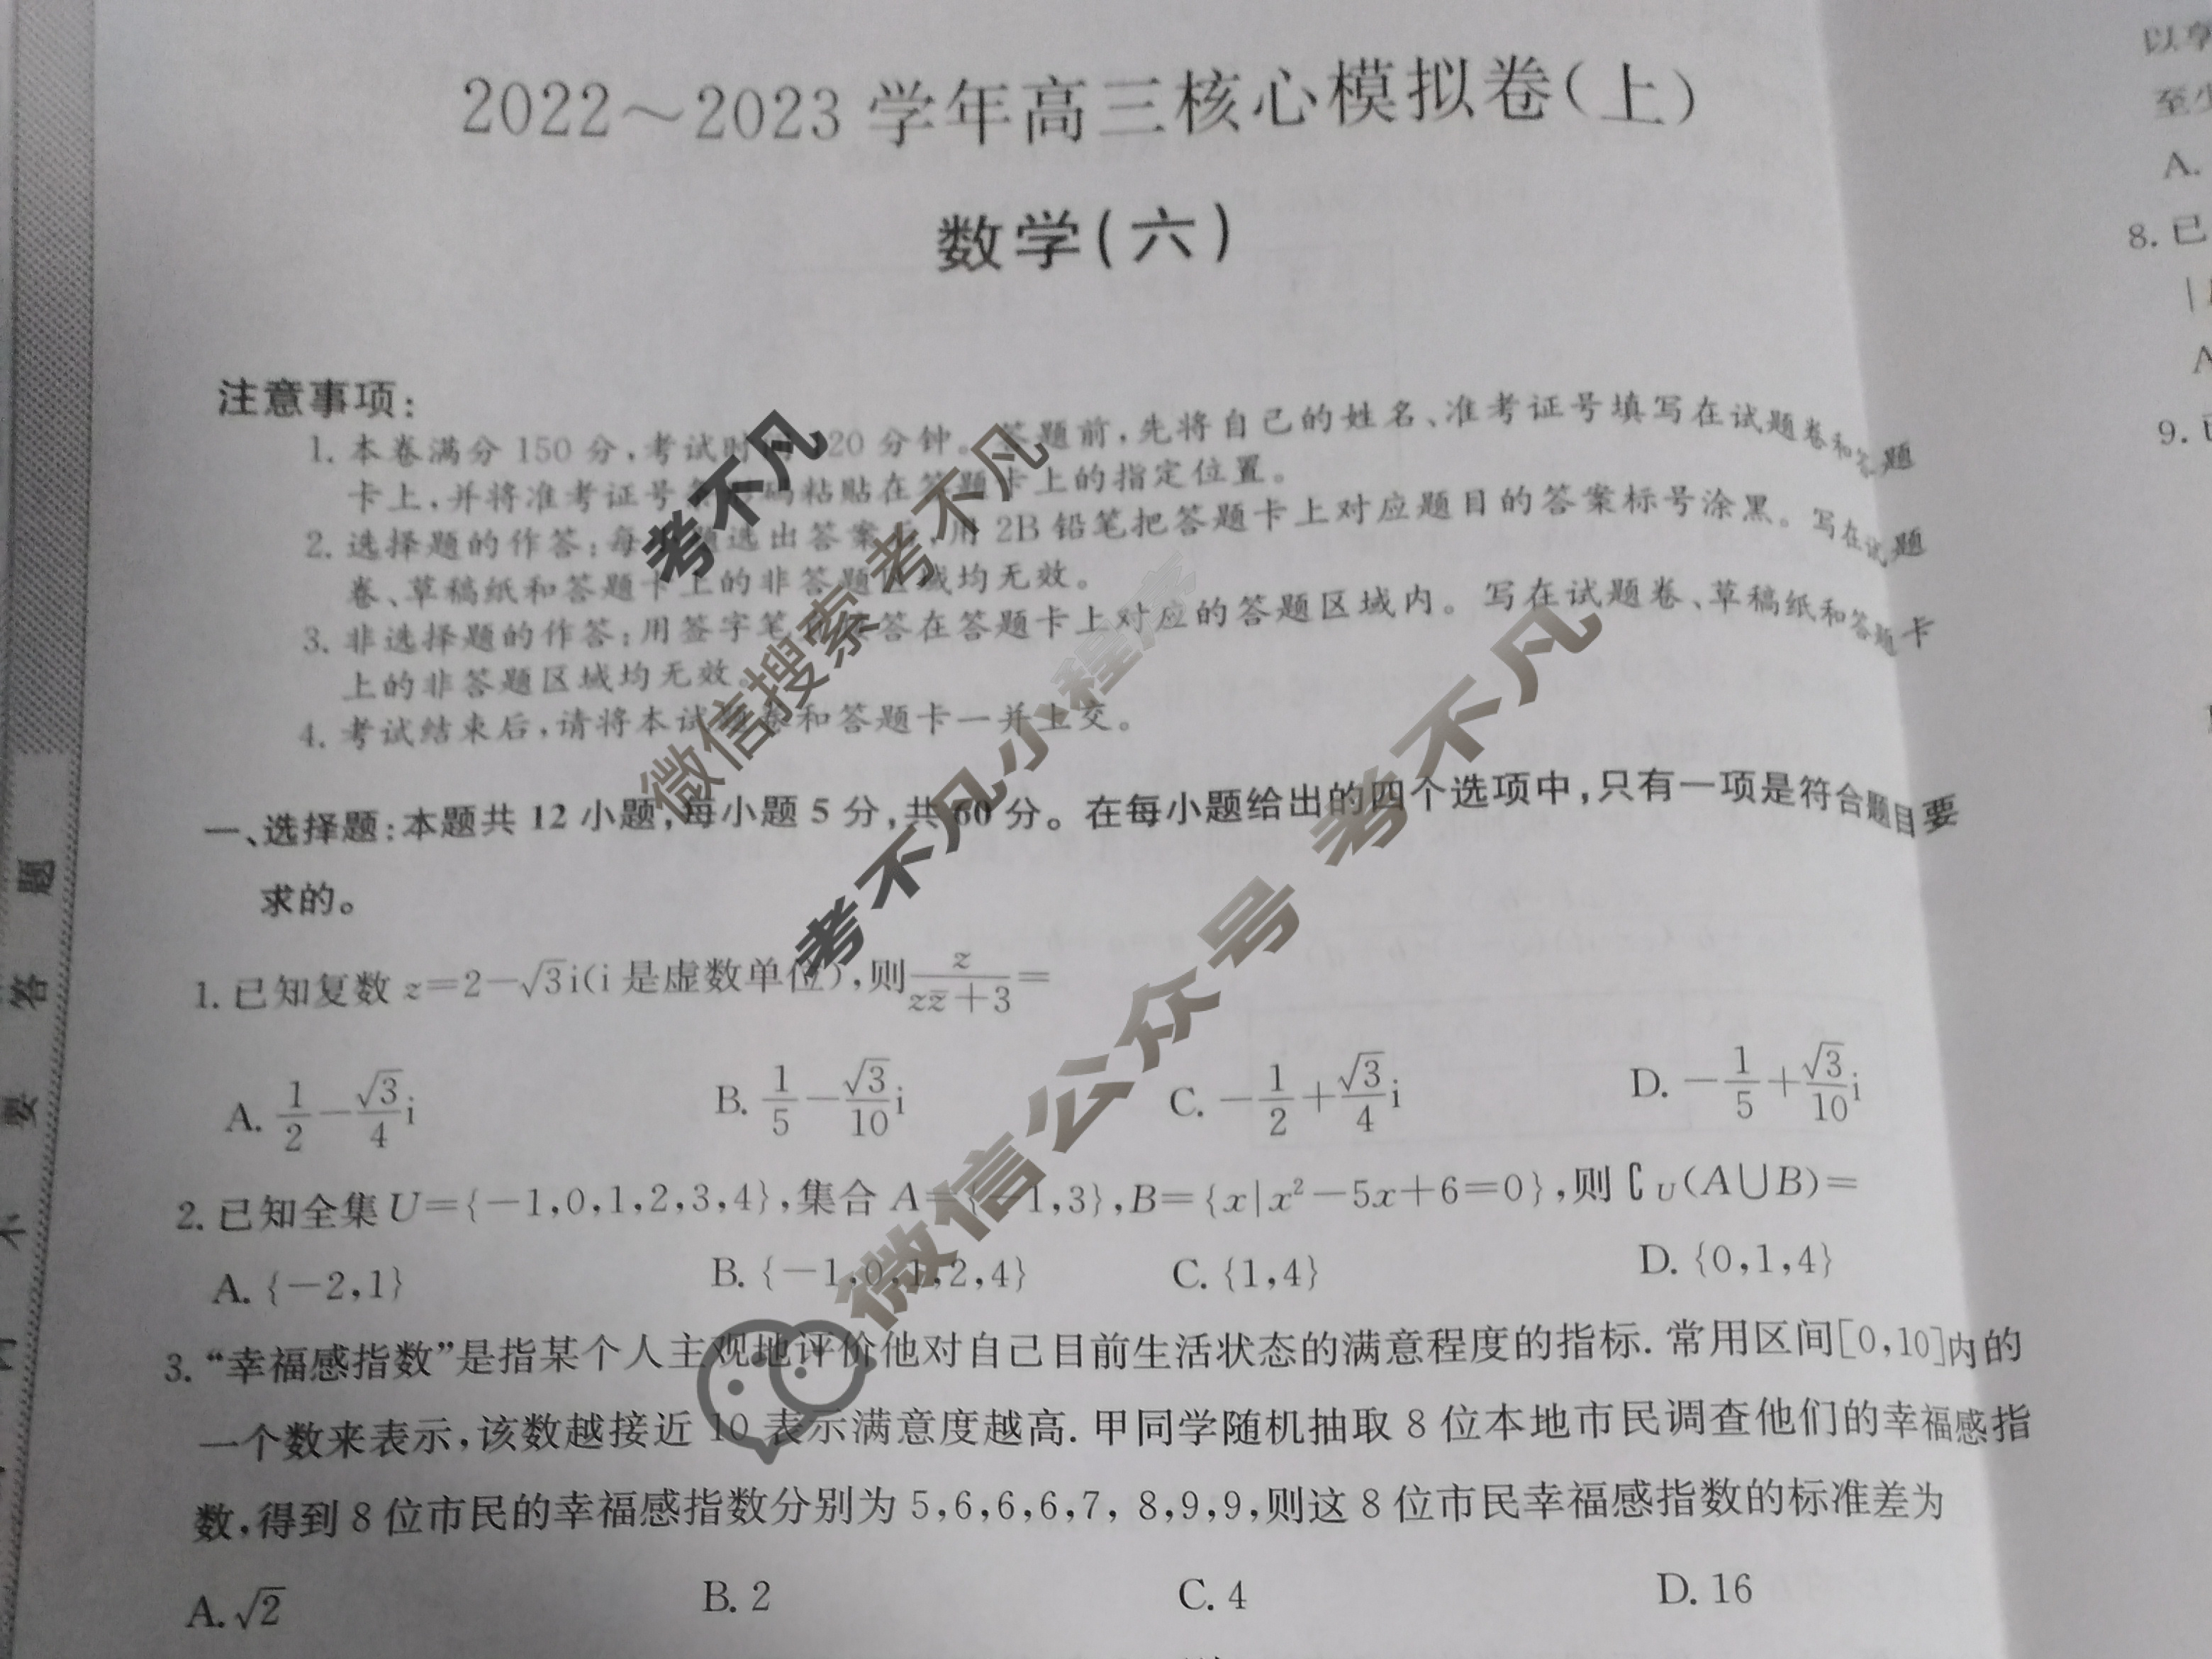 2022～2023 学年高三核心模拟卷(上)
数学(六)
注意事项:
1. 本卷满分 150 分,考试时 20 分钟。 题前,先将自己的姓名、准考证号填写在试题卷和答题
卡上,并将准考证号 码粘贴在答题卡上的指定位置。
2. 选择题的作答:每 选出答案 ,用 2B 铅笔把答题卡上对应题目的答案标号涂黑。写在试题
卷、草稿纸和答题卡上的非答题区域均无效。
3. 非选择题的作答:用签字笔 答在答题卡上对应的答题区域内。写在试题卷、草稿纸和答题卡
上的非答题区域均无效。
4. 考试结束后,请将本试 卷和答题卡一并上交。
一、选择题:本题共 12 小题,每小题 5 分,共 60 分。在每小题给出的四个选项中,只有一项是符合题目要
求的。
1. 已知复数 z=2-√3i(i 是虚数单位),则 z/(zz̄+3)=
A. 1/2-√3/4 i B. 1/5-√3/10 i C. -1/2+√3/4 i D. -1/5+√3/10 i
2. 已知全集 U={-1,0,1,2,3,4},集合 A={-1,3},B={x|x²-5x+6=0},则∁U(A∪B)=
A. {-2,1} B. {-1,0,1,2,4} C. {1,4} D. {0,1,4}
3. “幸福感指数”是指某个人主观地评价他对自己目前生活状态的满意程度的指标. 常用区间[0,10]内的
一个数来表示,该数越接近 10 表示满意度越高. 甲同学随机抽取 8 位本地市民调查他们的幸福感指
数,得到 8 位市民的幸福感指数分别为 5,6,6,6,7, 8,9,9,则这 8 位市民幸福感指数的标准差为
A. √2 B. 2 C. 4 D. 16
考不凡
微信搜索 考不凡
考不凡小程序
微信公众号 考不凡
题
答
要
不
内
以
至少
A.
8. 已
A
9.